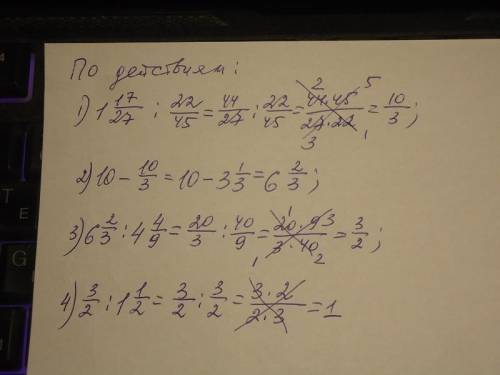 По действиям:
1) 1 17/27 : 22/45 = 44/27 : 22/45 = 44·45/27·22 = 10/3;
2) 10 − 10/3 = 10 − 3 1/3 = 6 2/3;
3) 6 2/3 : 4 4/9 = 20/3 : 40/9 = 20·9/3·40 = 3/2;
4) 3/2 : 1 1/2 = 3/2 : 3/2 = 3·2/2·3 = 1